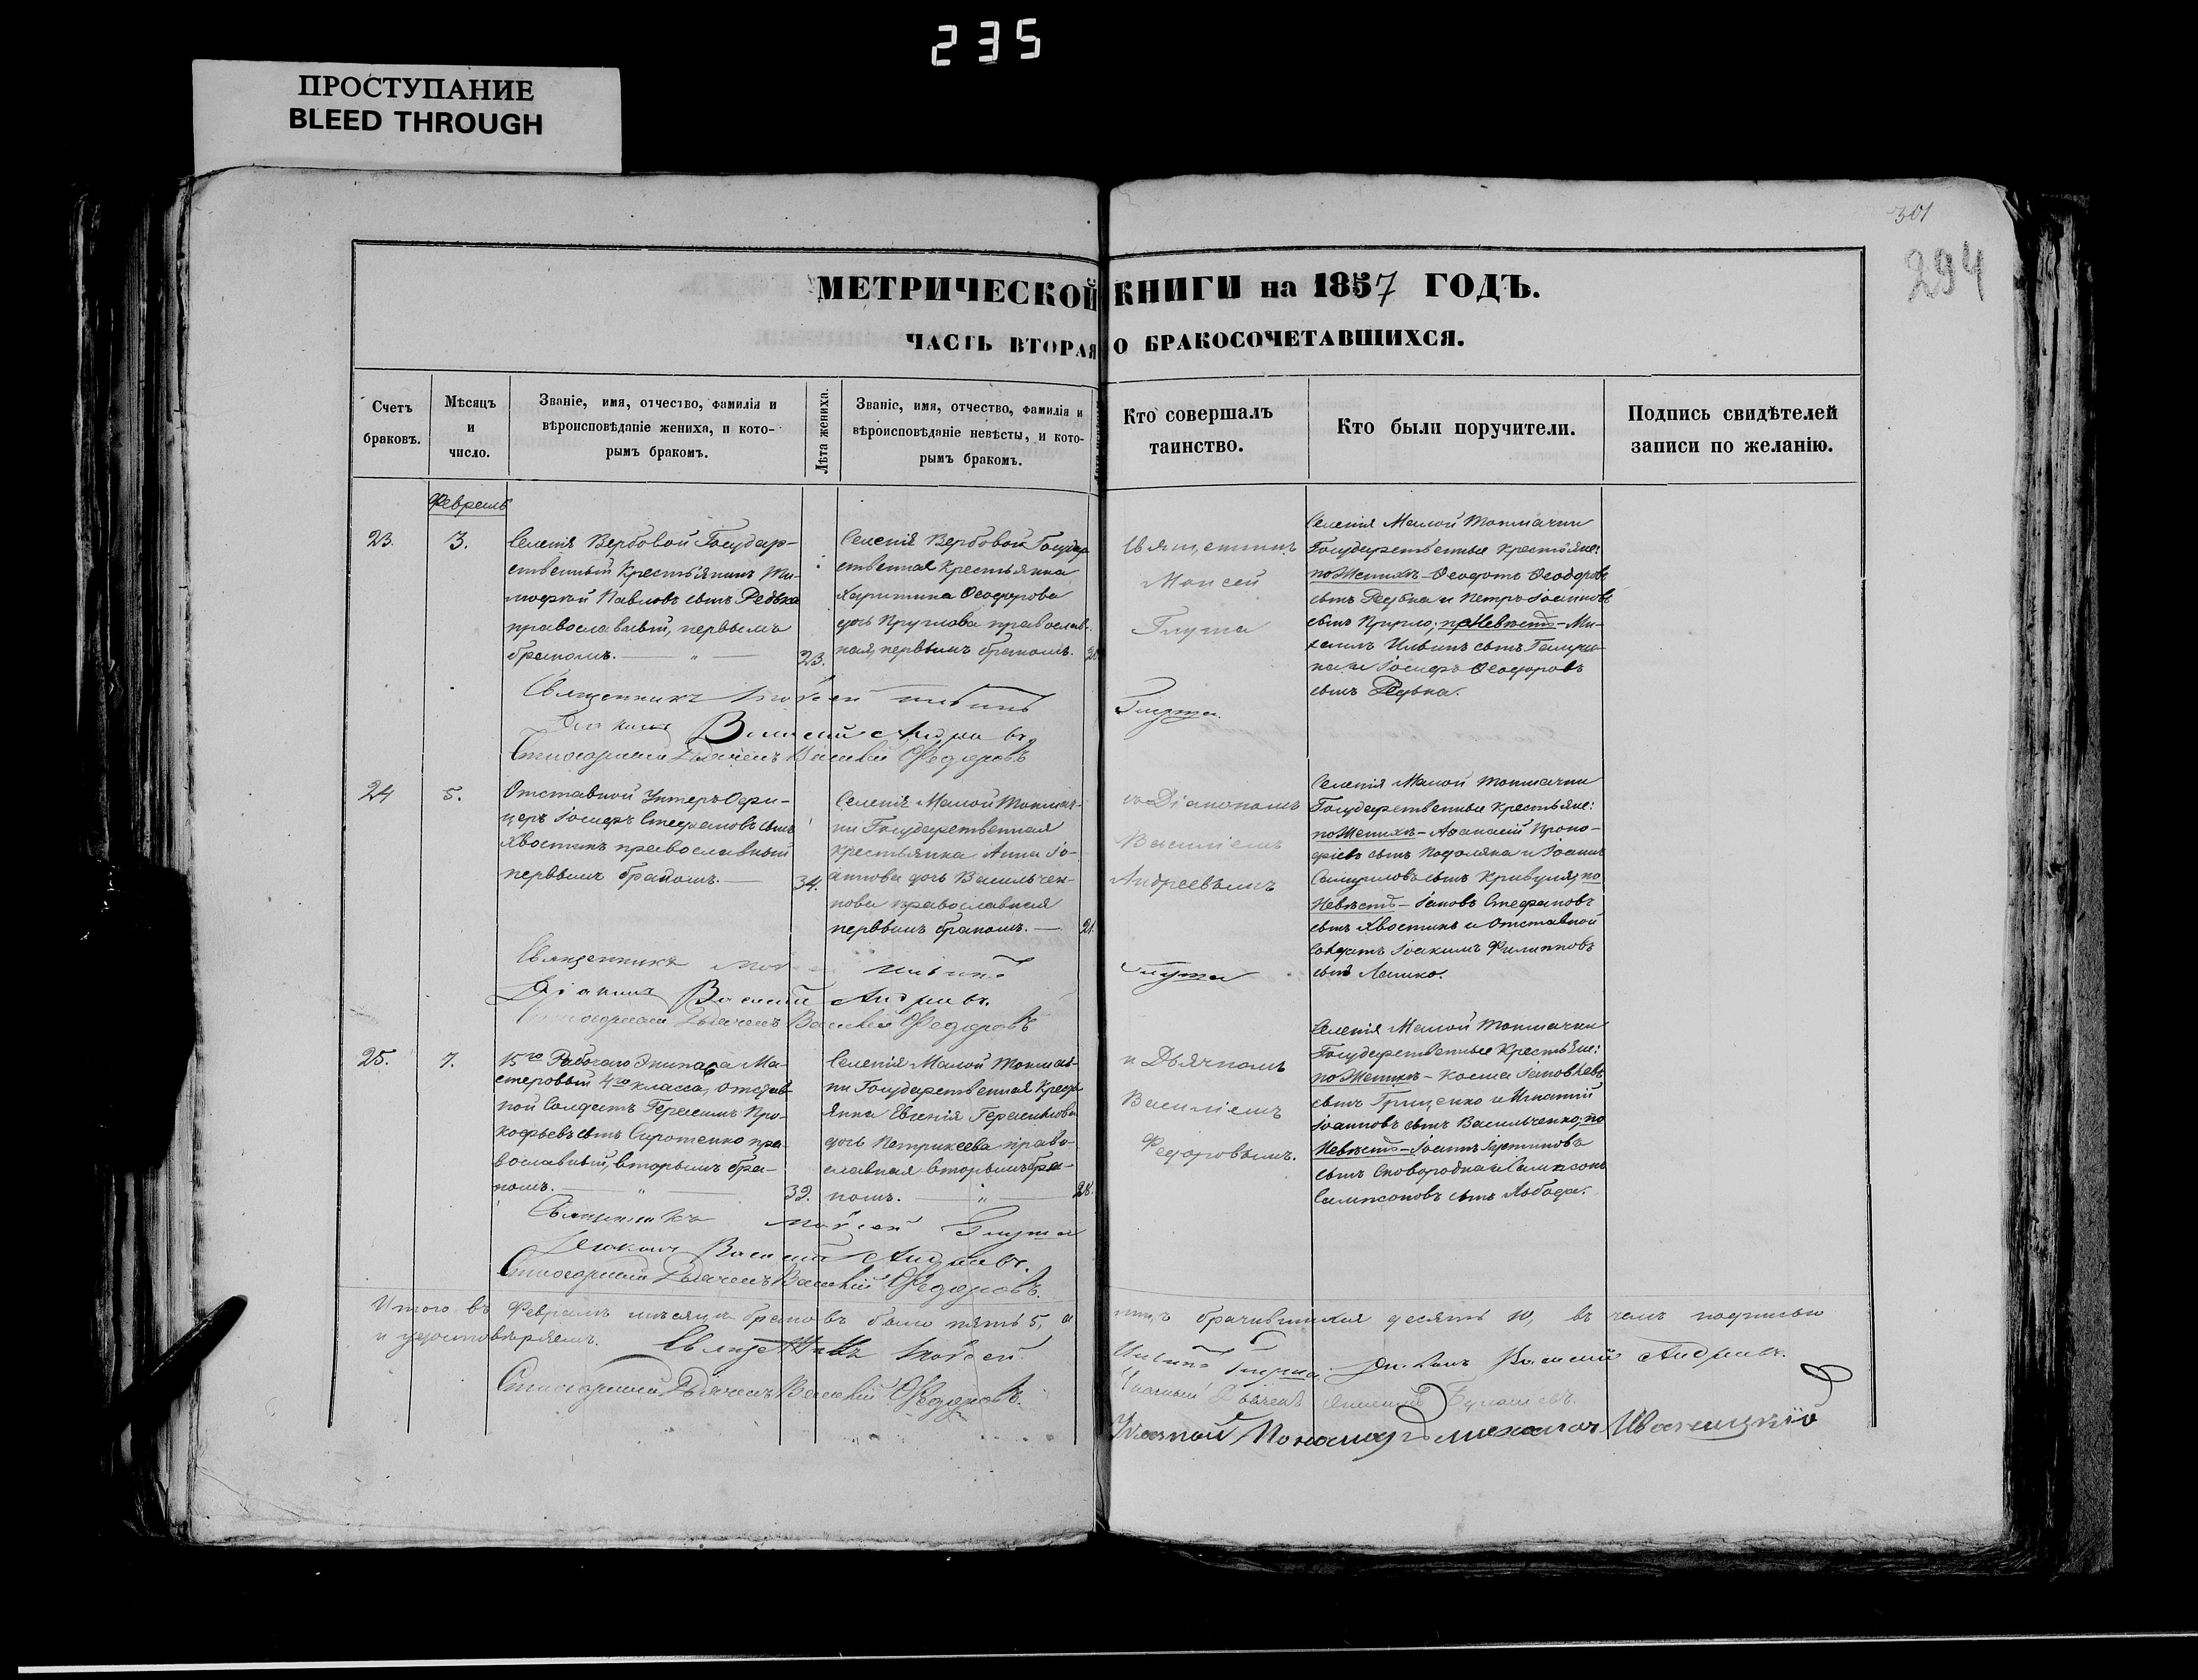 235
ПРОСТУПАНИЕ
BLEED THROUGH
301
294
МЕТРИЧЕСКОЙ КНИГИ на 1857 ГОДЪ.
ЧАСТЬ ВТОРАЯ О БРАКОСОЧЕТАВШИХСЯ.
Счетъ
браковъ.
Мѣсяцъ
и
число.
Званіе, имя, отчество, фамилія и
вѣроисповѣданіе жениха, и кото-
рымъ бракомъ.
Лѣта жениха.
Званіе, имя, отчество, фамилія и
вѣроисповѣданіе невѣсты, и кото-
рымъ бракомъ.
Кто совершалъ
таинство.
Кто были поручители.
Подпись свидѣтелей
записи по желанію.
Февраль
23.
3.
Селенія Вербовой Государ-
ственный Крестьянинъ Ти-
моѳей Павловъ сынъ Редька
православный, первымъ
бракомъ.
23.
Селенія Вербовой Государ
ственная Крестьянка
Харитина Ѳеодорова
дочь Круглова православ-
ная, первымъ бракомъ.
Священникъ
Моисей
Глута
Селенія Малой Токмачки
Государственные Крестьяне:
по Женихѣ - Ѳеодотъ Ѳеодоровъ
сынъ Редька и Петръ Іоанновъ
сынъ Кирпло; по Невѣстѣ - Ми-
хаилъ Ильинъ сынъ
Іосифъ Ѳеодоровъ
сынъ Редька.
Священникъ Моисей Ильинъ Глута.
Діаконъ Василій Андреевъ
Стихарный Дьячекъ Василій Ѳедоровъ
24
5.
Отставной Унтеръ Офи-
церъ Іосифъ Стефановъ сынъ
Хвостикъ православный
первымъ бракомъ.
34.
Селенія Малой Токмач-
ки Государственная
крестьянка Анна Іо-
аннова дочь Васильчен-
кова православная
первымъ бракомъ.
21.
съ Діакономъ
Василіемъ
Андреевымъ
Селенія Малой Токмачки
Государственные крестьяне:
по Женихѣ - Аѳанасій Проко-
фіевъ сынъ Подоляка и Іоаннъ
сынъ Кривуля; по
Невѣстѣ - Іаковъ Стефановъ
сынъ Хвостикъ и Отставной
Солдатъ Іоакимъ Филипповъ
сынъ Лашко.
Священникъ Моисей Ильинъ Глута
Діаконъ Василій Андреевъ.
Стихарный Дьячекъ Василій Ѳедоровъ
25.
7.
15го Рабочаго Экипажа Ма-
стеровый 4го класса, отстав-
ной Солдатъ Герасимъ Про-
кофьевъ сынъ Сиротенко пра-
вославный, вторымъ бра-
комъ.
39.
Селенія Малой Токмач-
ки Государственная Кресть
янка Евгенія Герасимова
дочь Петрикеева право-
славная вторымъ бра-
комъ.
28.
и Дьячкомъ
Василіемъ
Ѳедоровымъ.
Селенія Малой Токмачки
Государственные Крестьяне:
по Женихѣ - Косма Іаковлевъ
сынъ Грищенко и Игнатій
Іоанновъ сынъ Васильченко; по
Невѣстѣ - Іоаннъ
сынъ Сковородка и Сампсонъ
Сампсоновъ сынъ Лобода.
Священникъ Моисей Глута
Діаконъ Василій Андреевъ.
Стихарный Дьячекъ Василій Ѳедоровъ.
Итого въ Февралѣ мѣсяцѣ браковъ было пять 5, а лицъ брачившихся десять 10, въ чемъ подписью
и удостовѣряемъ. Священникъ Моисей Ильинъ Глута Діаконъ Василій Андреевъ.
Стихарный Дьячекъ Василій Ѳедоровъ. Указный Дьячекъ
Указной Пономарь Ивановицкій